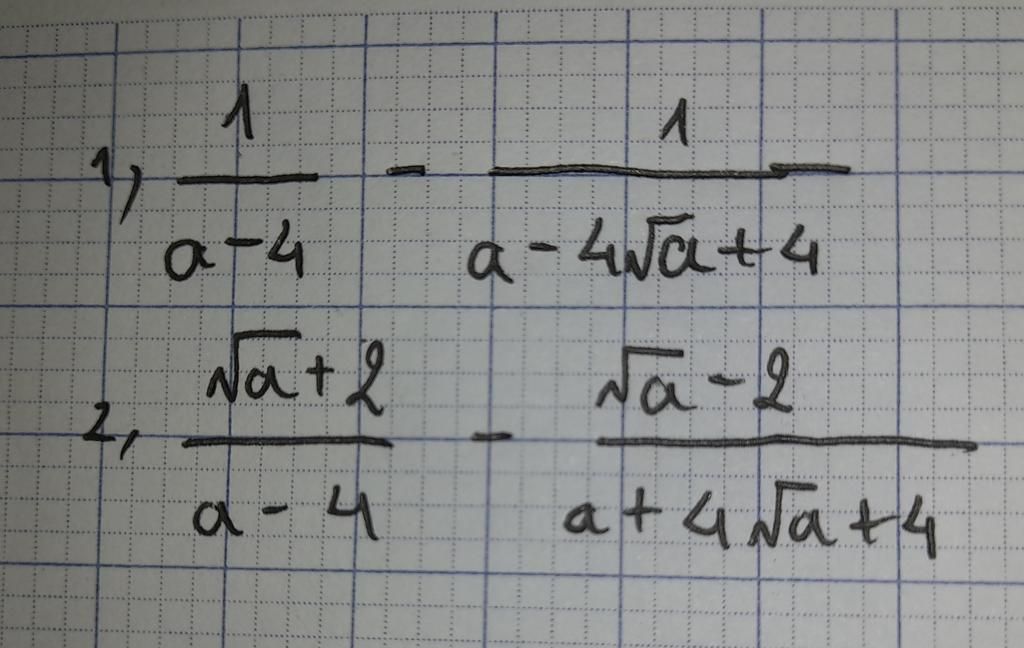 1, 1/(a-4) - 1/(a-4√a+4)
2, (√a+2)/(a-4) - (√a-2)/(a+4√a+4)